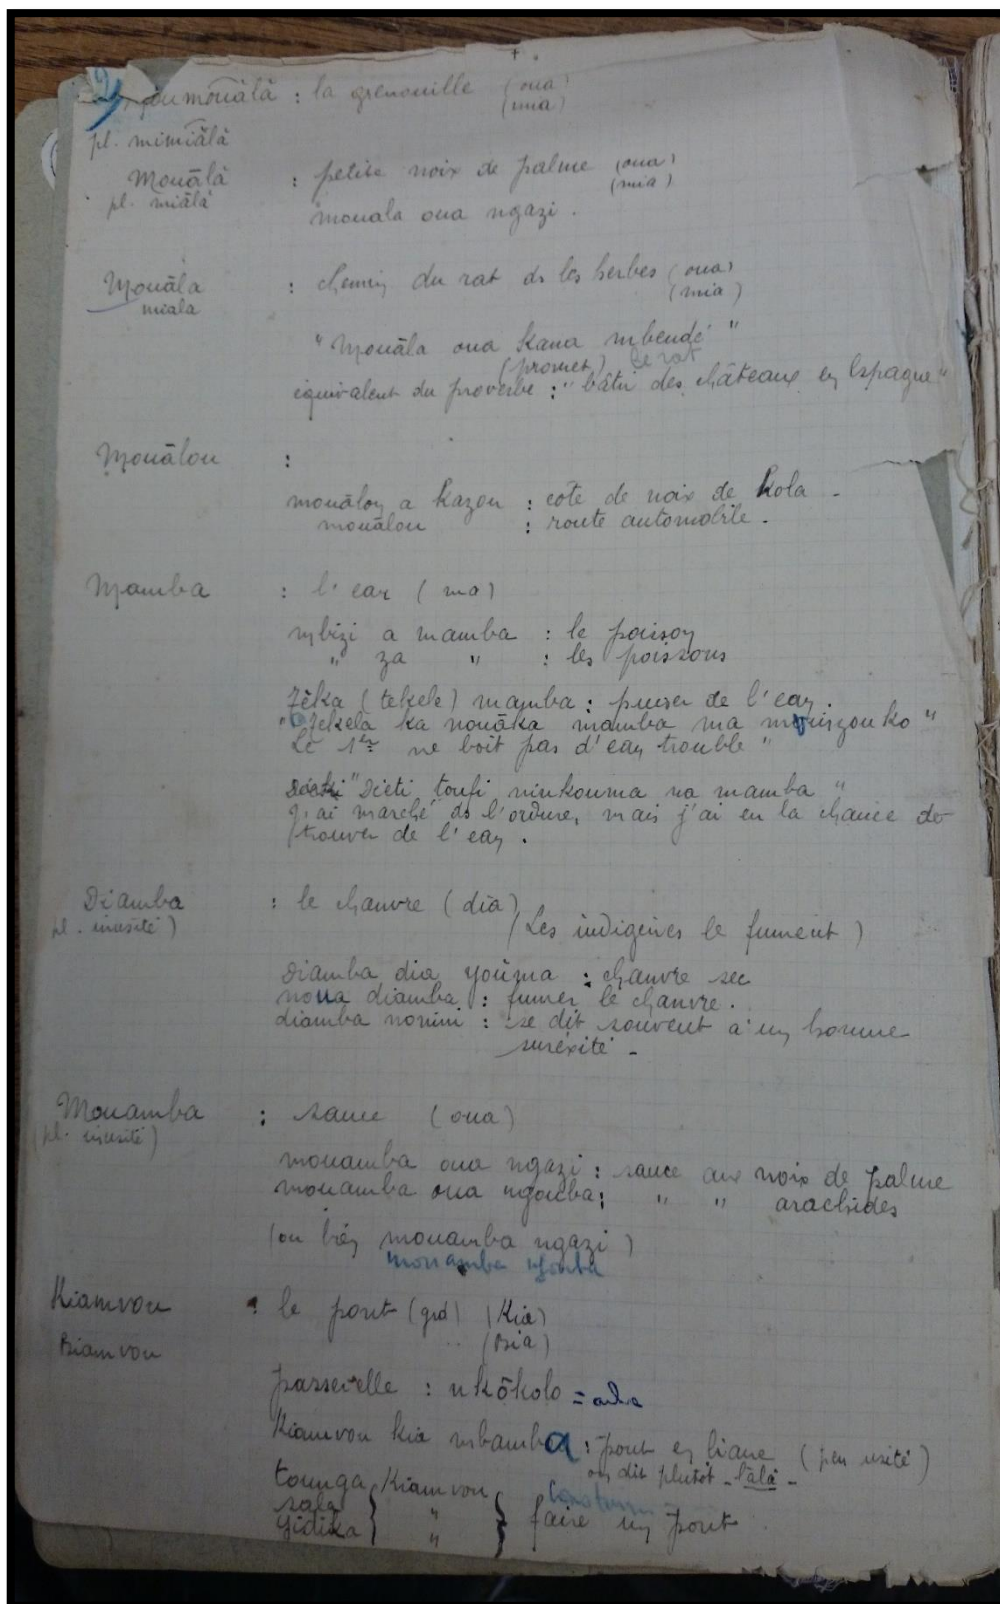 2)
mouālā : la grenouille (oua)
(mia)
pl. mimiālā
Mouālā : petite noix de palme (oua)
pl. miālā (mia)
mouala oua ngazi.
Mouāla : chemin du rat ds les herbes (oua)
miala (mia)
"Mouāla oua Kana mbendé"
(promet) le rat
équivalent du proverbe : "bâtir des châteaux en Espagne"
Mouālou :
mouālou a Kazou : côte de noix de Kola -
mouālou : route automobile.
Mamba : l'eau (ma)
mbizi a mamba : le poisson
" za " : les poissons
Tēka (tekele) mamba : puiser de l'eau.
"Tekela ka nouāka mamba ma ko"
Le 1er ne boit pas d'eau trouble"
"Diéti toufi ninkouma na mamba"
J'ai marché ds l'ordure, mais j'ai eu la chance de
trouver de l'eau.
Diamba : le chanvre (dia)
pl. inusité) (Les indigènes le fument)
Diamba dia youma : chanvre sec
noua diamba : fumer le chanvre.
diamba nonini : se dit souvent à un homme
suréxité -
Mouamba : sauce (oua)
(pl. inusité)
mouamba oua ngazi : sauce aux noix de palme
mouamba oua ngouba : " " arachides
(ou bien mouamba ngazi)
mouamba ngouba
Kiamvou : le pont (grd) (Kia)
Biamvou .. (Bia)
passerelle : nkōkolo =
Kiamvou kia mbamba : pont en liane (peu usité)
on dit plutôt - lālā -
tounga Kiamvou
sala " } faire un pont
Yidika "